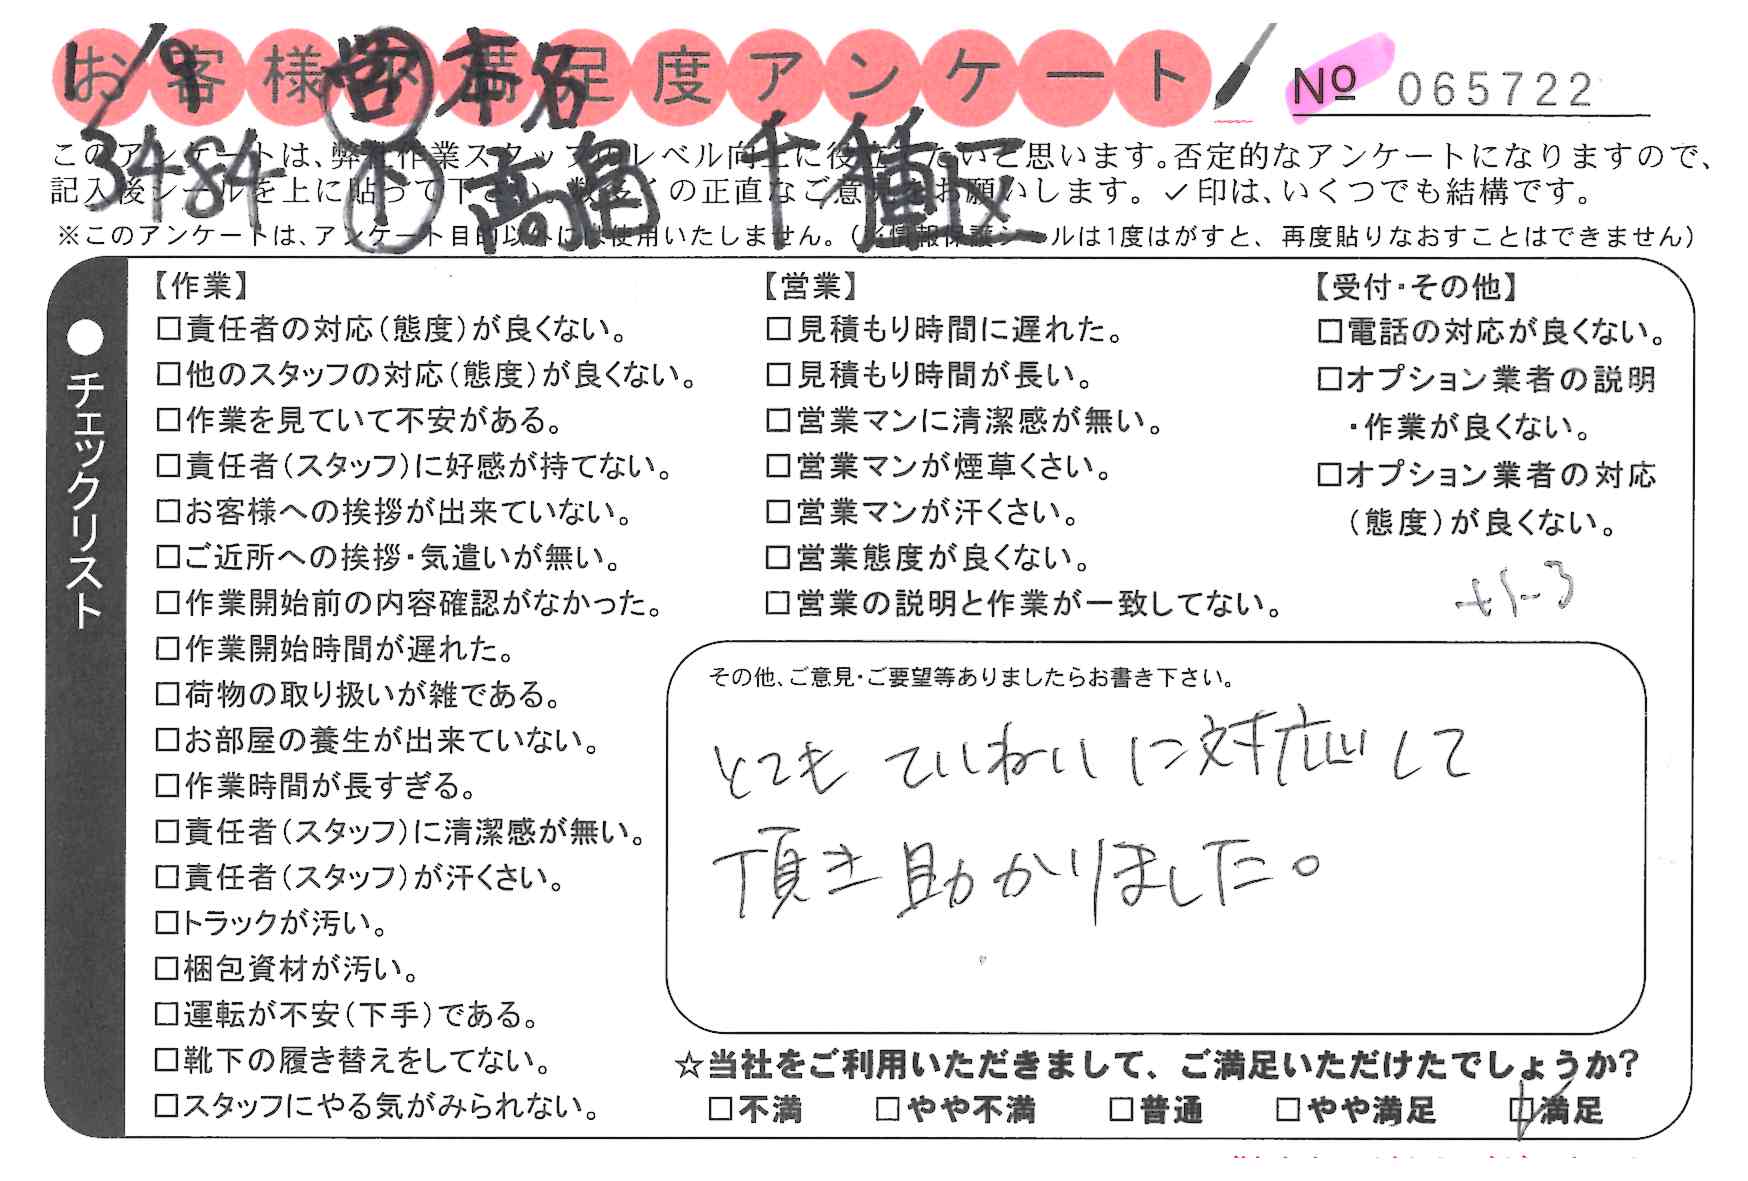 お客様の満足度アンケート
No 065722
1/9 営 本名
3484 下 高角 千種区
このアンケートは、弊社作業スタッフのレベル向上に役立てたいと思います。否定的なアンケートになりますので、
記入後シールを上に貼って下さい。数多くの正直なご意見をお願いします。✓印は、いくつでも結構です。
※このアンケートは、アンケート目的以外には使用いたしません。(※情報保護シールは1度はがすと、再度貼りなおすことはできません)
●チェックリスト
【作業】
□責任者の対応(態度)が良くない。
□他のスタッフの対応(態度)が良くない。
□作業を見ていて不安がある。
□責任者(スタッフ)に好感が持てない。
□お客様への挨拶が出来ていない。
□ご近所への挨拶・気遣いが無い。
□作業開始前の内容確認がなかった。
□作業開始時間が遅れた。
□荷物の取り扱いが雑である。
□お部屋の養生が出来ていない。
□作業時間が長すぎる。
□責任者(スタッフ)に清潔感が無い。
□責任者(スタッフ)が汗くさい。
□トラックが汚い。
□梱包資材が汚い。
□運転が不安(下手)である。
□靴下の履き替えをしてない。
□スタッフにやる気がみられない。
【営業】
□見積もり時間に遅れた。
□見積もり時間が長い。
□営業マンに清潔感が無い。
□営業マンが煙草くさい。
□営業マンが汗くさい。
□営業態度が良くない。
□営業の説明と作業が一致してない。
【受付・その他】
□電話の対応が良くない。
□オプション業者の説明
・作業が良くない。
□オプション業者の対応
(態度)が良くない。
その他、ご意見・ご要望等ありましたらお書き下さい。
とても ていねいに対応して
頂き助かりました。
☆当社をご利用いただきまして、ご満足いただけたでしょうか?
□不満 □やや不満 □普通 □やや満足 □満足